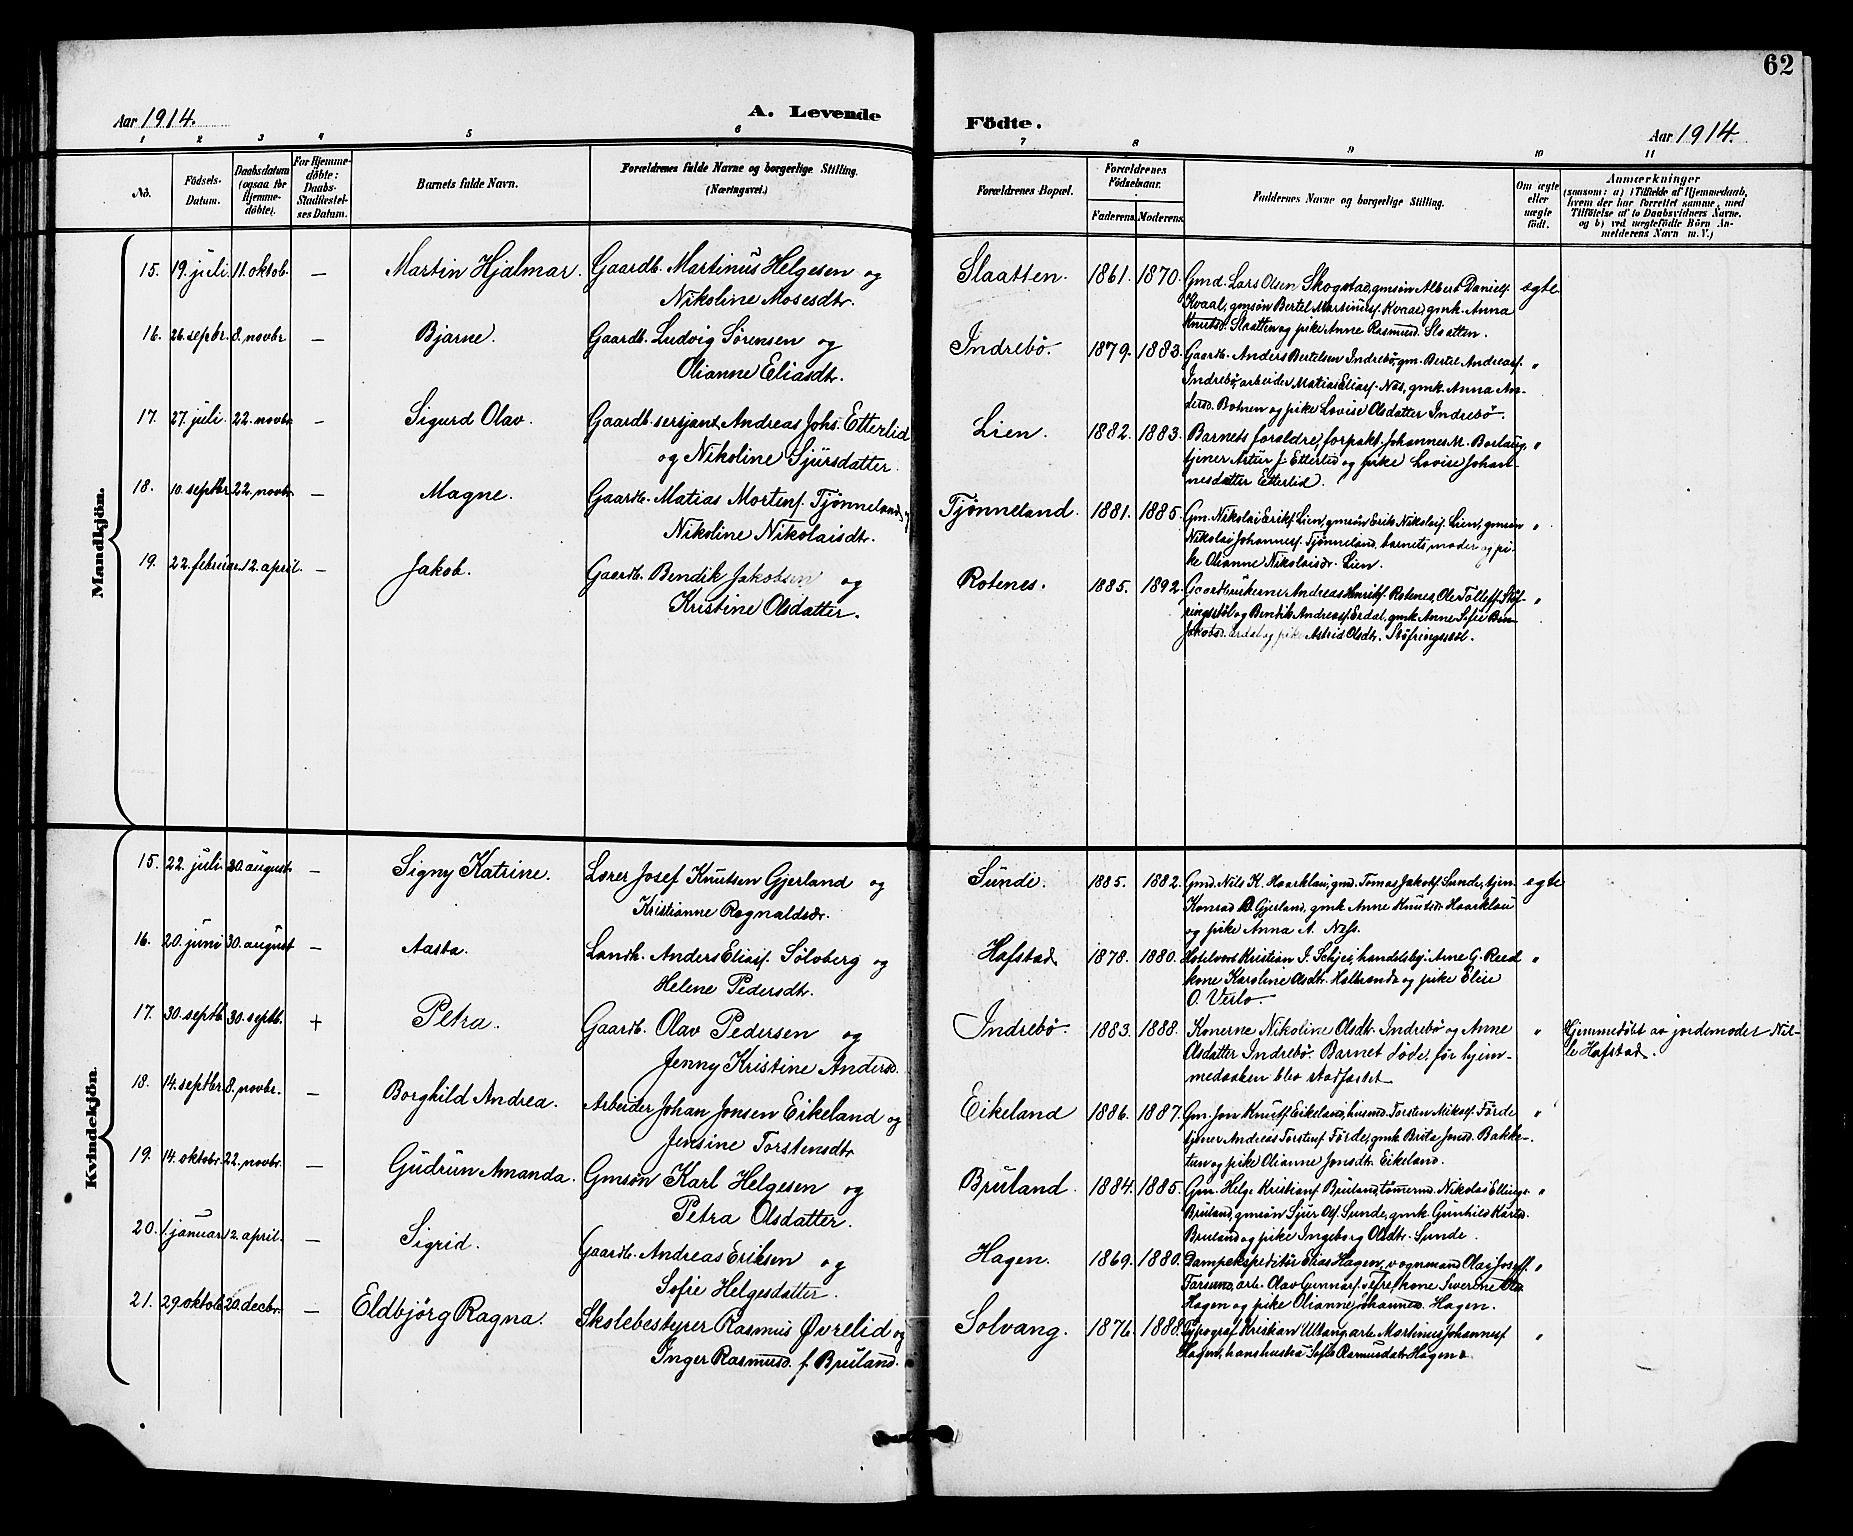 62
Aar 1914.
A. Levende
Födte.
Aar 1914.
1 2 3 4 5 6 7 8 9 10 11
No.
Födsels-Datum.
Daabsdatum (ogsaa for Hjemmedöbte).
For Hjemmedöbte: Daabs-Stadfæstelses Datum.
Barnets fulde Navn.
Forældrenes fulde Navne og borgerlige Stilling. (Næringsvei.)
Forældrenes Bopæl.
Forældrenes Födselsaar.
Faderens. Moderens.
Faddernes Navne og borgerlige Stilling.
Om ægte eller uægte födt.
Anmærkninger
(saasom: a) i Tilfælde af Hjemmedaab, hvem der har forrettet samme, med Tilföielse af to Daabsvidners Navne. og b) ved uægtefödte Börn Anmelderens Navn m. V.)
Mandkjön.
15. 19. juli. 11. oktob. — Martin Hjalmar. Gaardb. Martinus Helgesen og
Nikoline Mosesdtr.
Slaatten. 1861. 1870. Gmd. Lars Olsen Skogstad, gmsøn Albert Danielsf. ægte
Kvaal, gmsøn Bertel Martinusf. Kvaal, gmk. Anna
Knutsd. Slaatten og pike Anne Rasmusd. Slaatten.
16. 26. septbr. 8. novbr. — Bjarne. Gaardb. Ludvig Sørensen og
Olianne Eliasdtr.
Indrebö. 1879. 1883. Gaardb. Anders Bertelsen Indrebö, gm. Bertel Andreasf. "
Indrebö, arbeider Matias Eliasf. Nes, gmk. Anna An-
dersd. Botnen og pike Lovise Olsdatter Indrebö.
17. 27. juli. 22. novbr. — Sigurd Olav. Gaardb. sersjant Andreas Johs. Etterlid
og Nikoline Sjursdatter.
Lien. 1882. 1883. Barnets foreldre, forpakt. Johannes M. Borlaug "
tjener Artur J. Etterlid og pike Lovise Johan-
nesdatter Etterlid.
18. 10. septbr. 22. novbr. — Magne. Gaardb. Matias Mortensf. Tjönneland og
Nikoline Nikolaisdtr.
Tjönneland. 1881. 1885. Gm. Nikolai Eriksf. Lien, gmsøn Erik Nikolaisf. Lien, gmsøn "
Nikolai Johannesf. Tjönneland, barnets moder og pi-
ke Olianne Nikolaisdr. Lien.
19. 22. februar. 12. april. — Jakob. Gaardb. Bendik Jakobsen og
Kristine Olsdatter.
Rotenes. 1885. 1892. Gaardbrukerne Andreas Henriksf. Rotenes, Ole Tollefsf. Stöf- "
ringsstöl og Bendik Andreasf. Erdal, gmk. Anne Sofie Ben-
Jakobsd. Erdal og pike Astrid Olsdtr. Stöfringsstöl.
Kvindekjön.
15. 22. juli. 30. august. — Signy Katrine. Lærer Josef Knutsen Gjerland og
Kristianne Ragnaldsdr.
Sunde. 1885. 1882. Gmd. Nils K. Haarklau, gmd. Tomas Jakobsf. Sunde, tjen. ægte
Konrad B. Gjerland, gmk. Anne Knutsdr. Haarklau
og pike Anna A. Næss.
16. 20. juni 30. august — Aasta. Landh. Anders Eliasf. Sölvberg og
Helene Pedersdtr.
Hafstad 1878. 1880. Hotelvert Kristian J. Schjei, handelsbj. Arne G. Reed "
kone Karoline Olsdtr. Halbrands og pike Elise
O. Verlo
17. 30. septb. 30. septb. + Petra. Gaardb. Olav Pedersen og
Jenny Kristine Andersd.
Indrebö. 1883. 1888. Konerne Nikoline Olsdtr. Indrebö og Anne "
Olsdatter Indrebö. Barnet døde, før hjem-
medaaben blev stadfæstet.
Hjemmedöbt av jordemoder Nil-
le Hafstad.
18. 14. septbr. 8. novbr. — Borghild Andrea. Arbeider Johan Jonsen Eikeland og
Jensine Torstensdtr.
Eikeland 1886. 1887. Gm. Jon Knutsf. Eikeland, husmd. Torsten Mikelsf. Förde "
tjener Andreas Torstensf. Förde, gmk. Brita Jonsd. Bakke-
tun og pike Olianne Jonsdtr. Eikeland.
19. 14. oktobr. 22. novbr. — Gudrun Amanda. Gmsøn Karl Helgesen og
Petra Olsdatter.
Bruland. 1884. 1885. Gm. Helge Kristiansf. Bruland, tömmermd. Nikolai Ellings. "
Bruland, gmsøn Sjur Olsf. Sunde, gmk. Gunhild Karisd.
Bruland og pike Ingeborg Olsdtr. Sunde.
20. 1. januar. 12. april. — Sigrid. Gaardb. Andreas Eriksen og
Sofie Helgesdatter.
Hagen. 1869. 1880. Dampekspeditör Elias Hagen, vognmand Olai Josefsf. "
Farsund, arb. Olav Gunnarsf. Sefre, kone Siverine
Hagen og pike Olianne Johannesd. Hagen.
21. 29. oktob. 20. decbr. — Eldbjörg Ragna. Skolebestyrer Rasmus Øvrelid og
Inger Rasmusd. f. Bruland.
Solvang. 1876. 1888. Typograf Kristian Utvang, arb. Martinus Johannesf. "
Hagen, hans hustru Sofie Rasmusdatr. Hagen.